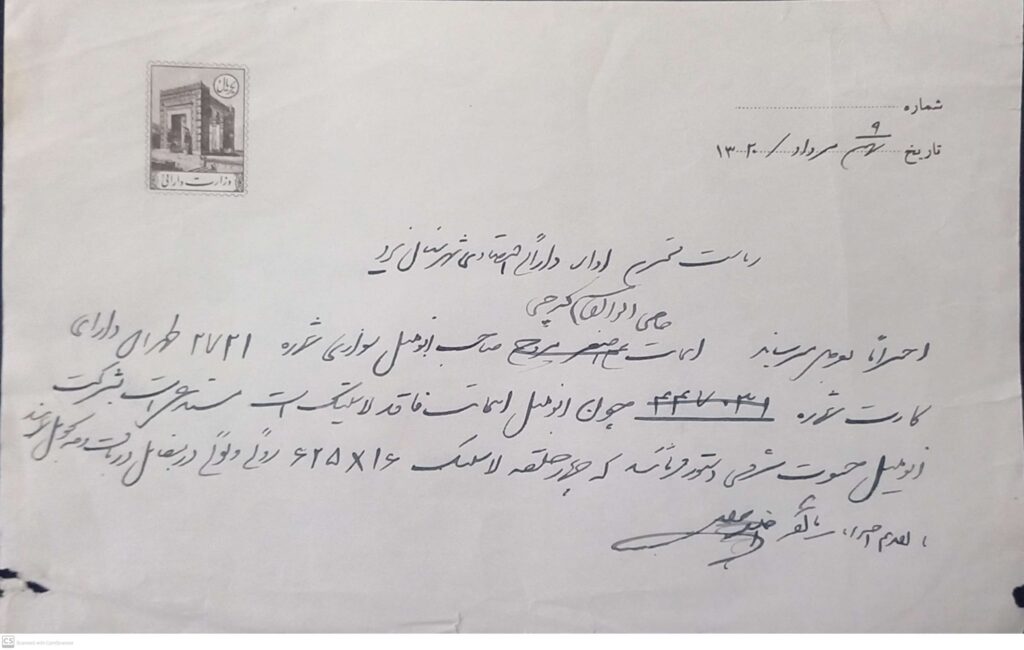 یکریال
وزارت دارائی
شماره
تاریخ ۹ مرداد / ۱۳۲۰
ریاست محترم اداره دارائی و اقتصادی شهرستان یزد
حاجی ابوالقاسم کرجی
احتراماً بعرض میرساند اینجانب صاحب اتومبیل سواری شماره ۲۷۲۱ طهران دارای
کارت شماره ۴۴۷۰۳۱ چون اتومبیل اینجانب فاقد لاستیک است مستدعی است بشرکت
اتومبیل دستور فرمائید که چهار حلقه لاستیک ۱۶×۶۲۵ روئی و توئی در مقابل دریافت وجه تحویل نمایند
با تقدیم احترامات
CS Scanned with CamScanner